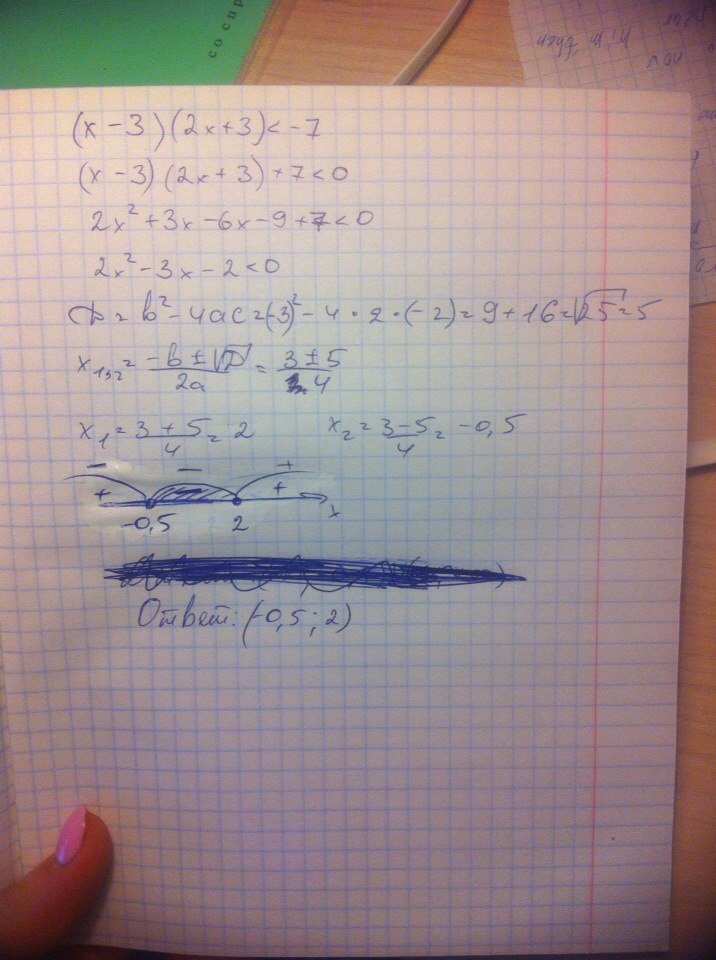 со спр
(x-3)(2x+3)<-7
(x-3)(2x+3)+7<0
2x²+3x-6x-9+7<0
2x²-3x-2<0
D=b²-4ac=(-3)²-4·2·(-2)=9+16=√25=5
x₁,₂=(-b±√D)/2a=(3±5)/4
x₁=(3+5)/4=2 x₂=(3-5)/4=-0,5
- - +
+ +
-0,5 2 x
Ответ: (-0,5; 2)